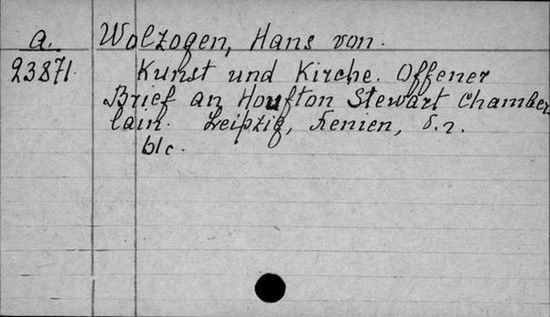 a. Wolzogen, Hans von.
23871. Kunst und Kirche. Offener
Brief an Houfton Stewart Chamber
lain. Leipzig, Xenien, б.г.
61c.